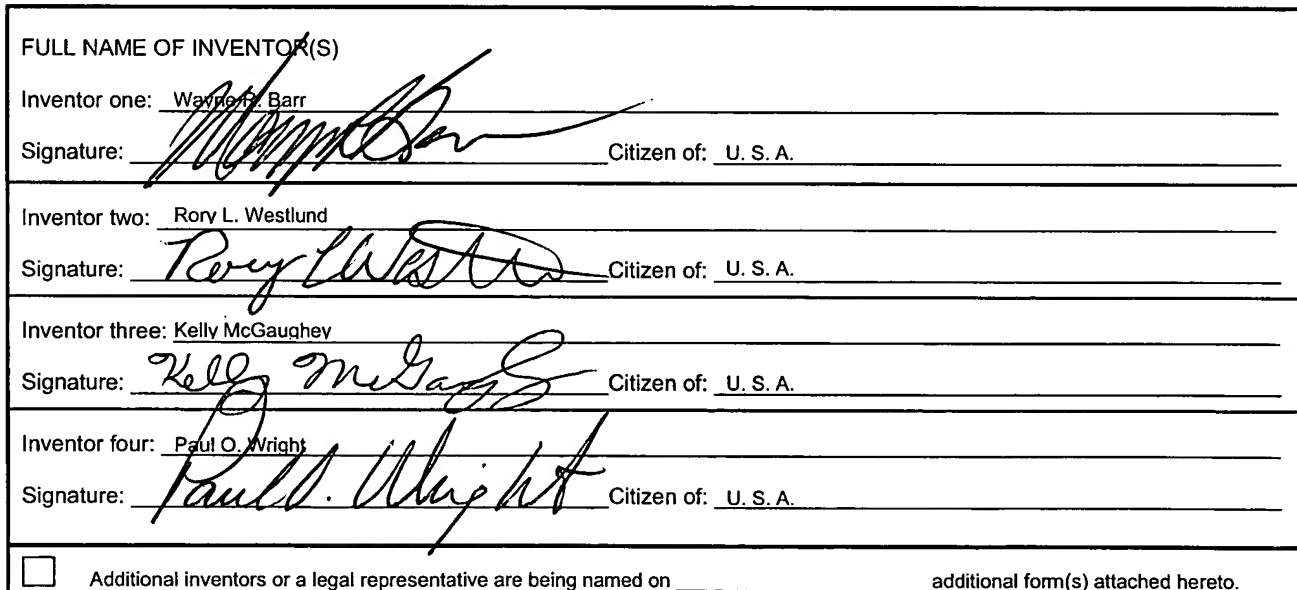 FULL NAME OF INVENTOR(S)
Inventor one: Wayne R. Barr
Signature: Citizen of: U. S. A.
Inventor two: Rory L. Westlund
Signature: Rory L Westlund Citizen of: U. S. A.
Inventor three: Kelly McGaughey
Signature: Kelly McGaughey Citizen of: U. S. A.
Inventor four: Paul O. Wright
Signature: Paul O. Wright Citizen of: U. S. A.
Additional inventors or a legal representative are being named on additional form(s) attached hereto.